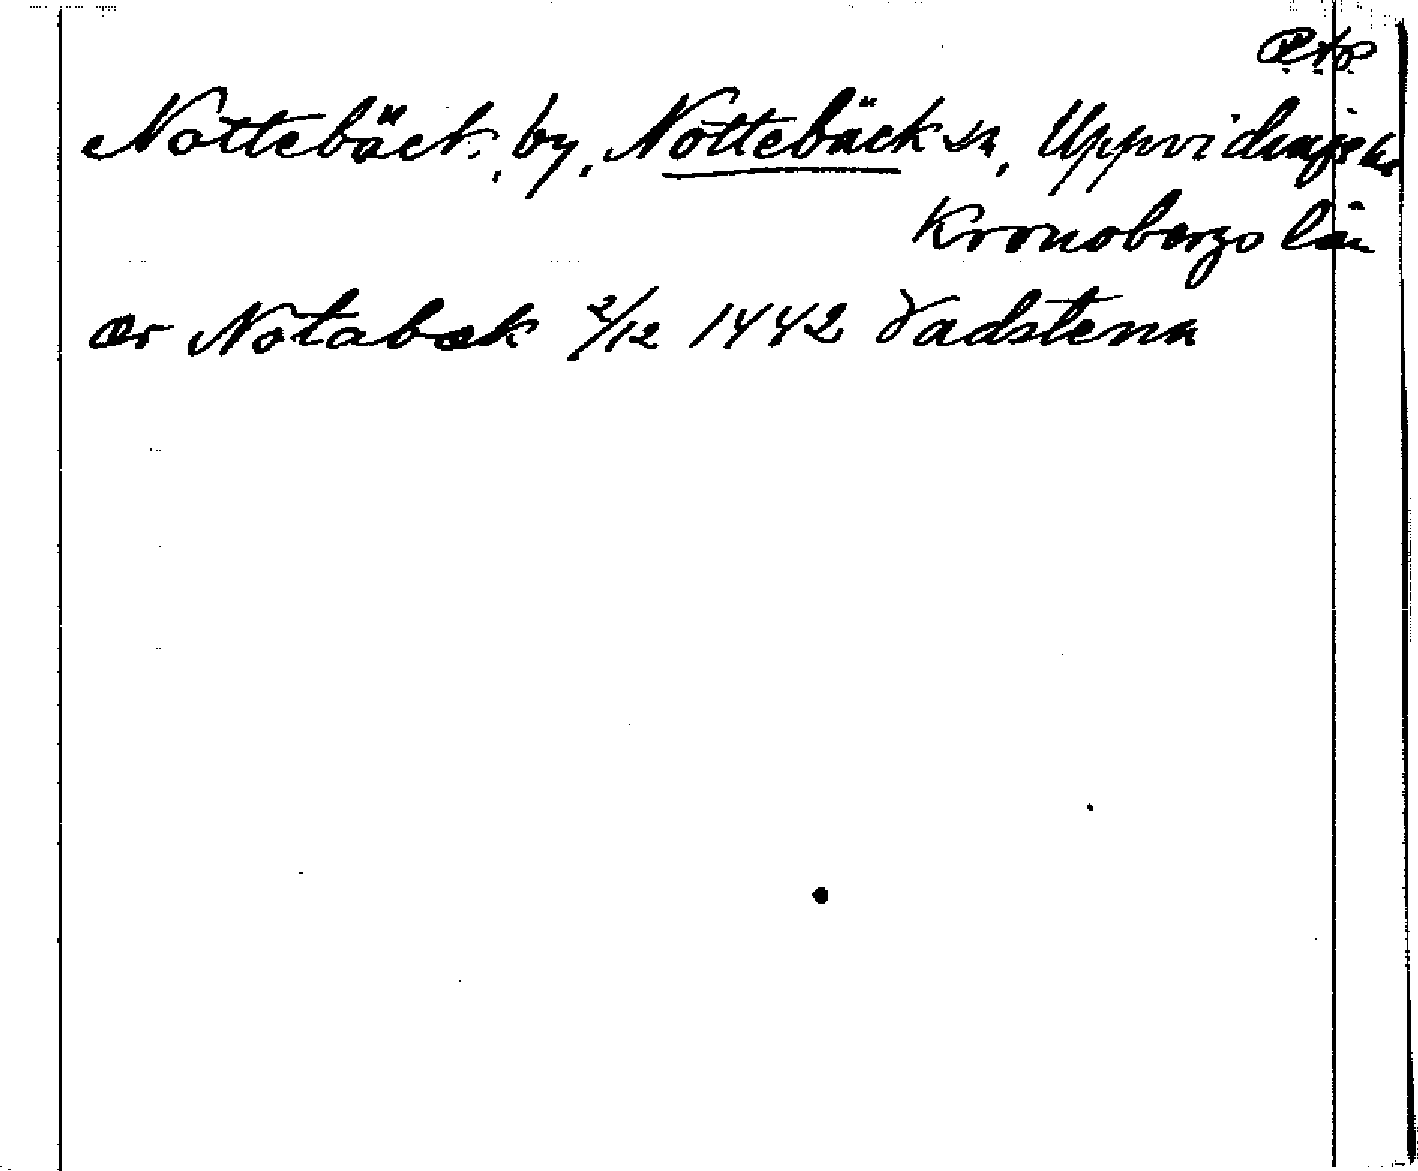 Nottebäck, by, Nottebäck sn, Uppvidinge hd
Kronobergs län
ær Notabæk 2/12 1442 Vadstena